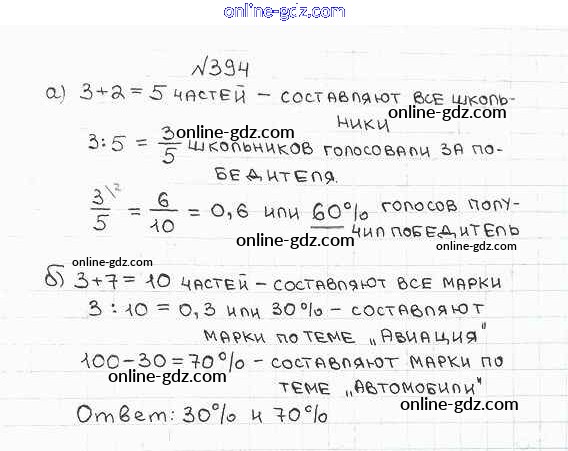 online-gdz.com
№394
а) 3+2 = 5 частей – составляют все школь-
online-gdz.com
ники
3:5 = 3/5 школьников голосовали за по-
online-gdz.com
бедителя.
3\2/5 = 6/10 = 0,6 или 60% голосов полу-
online-gdz.com
чил победитель
online-gdz.com
online-gdz.com
online-gdz.com
б) 3+7= 10 частей – составляют все марки
3 : 10 = 0,3 или 30% – составляют
online-gdz.com
марки по теме „Авиация"
100–30 = 70% – составляют марки по
online-gdz.com
теме „Автомобили"
online-gdz.com
Ответ: 30% и 70%